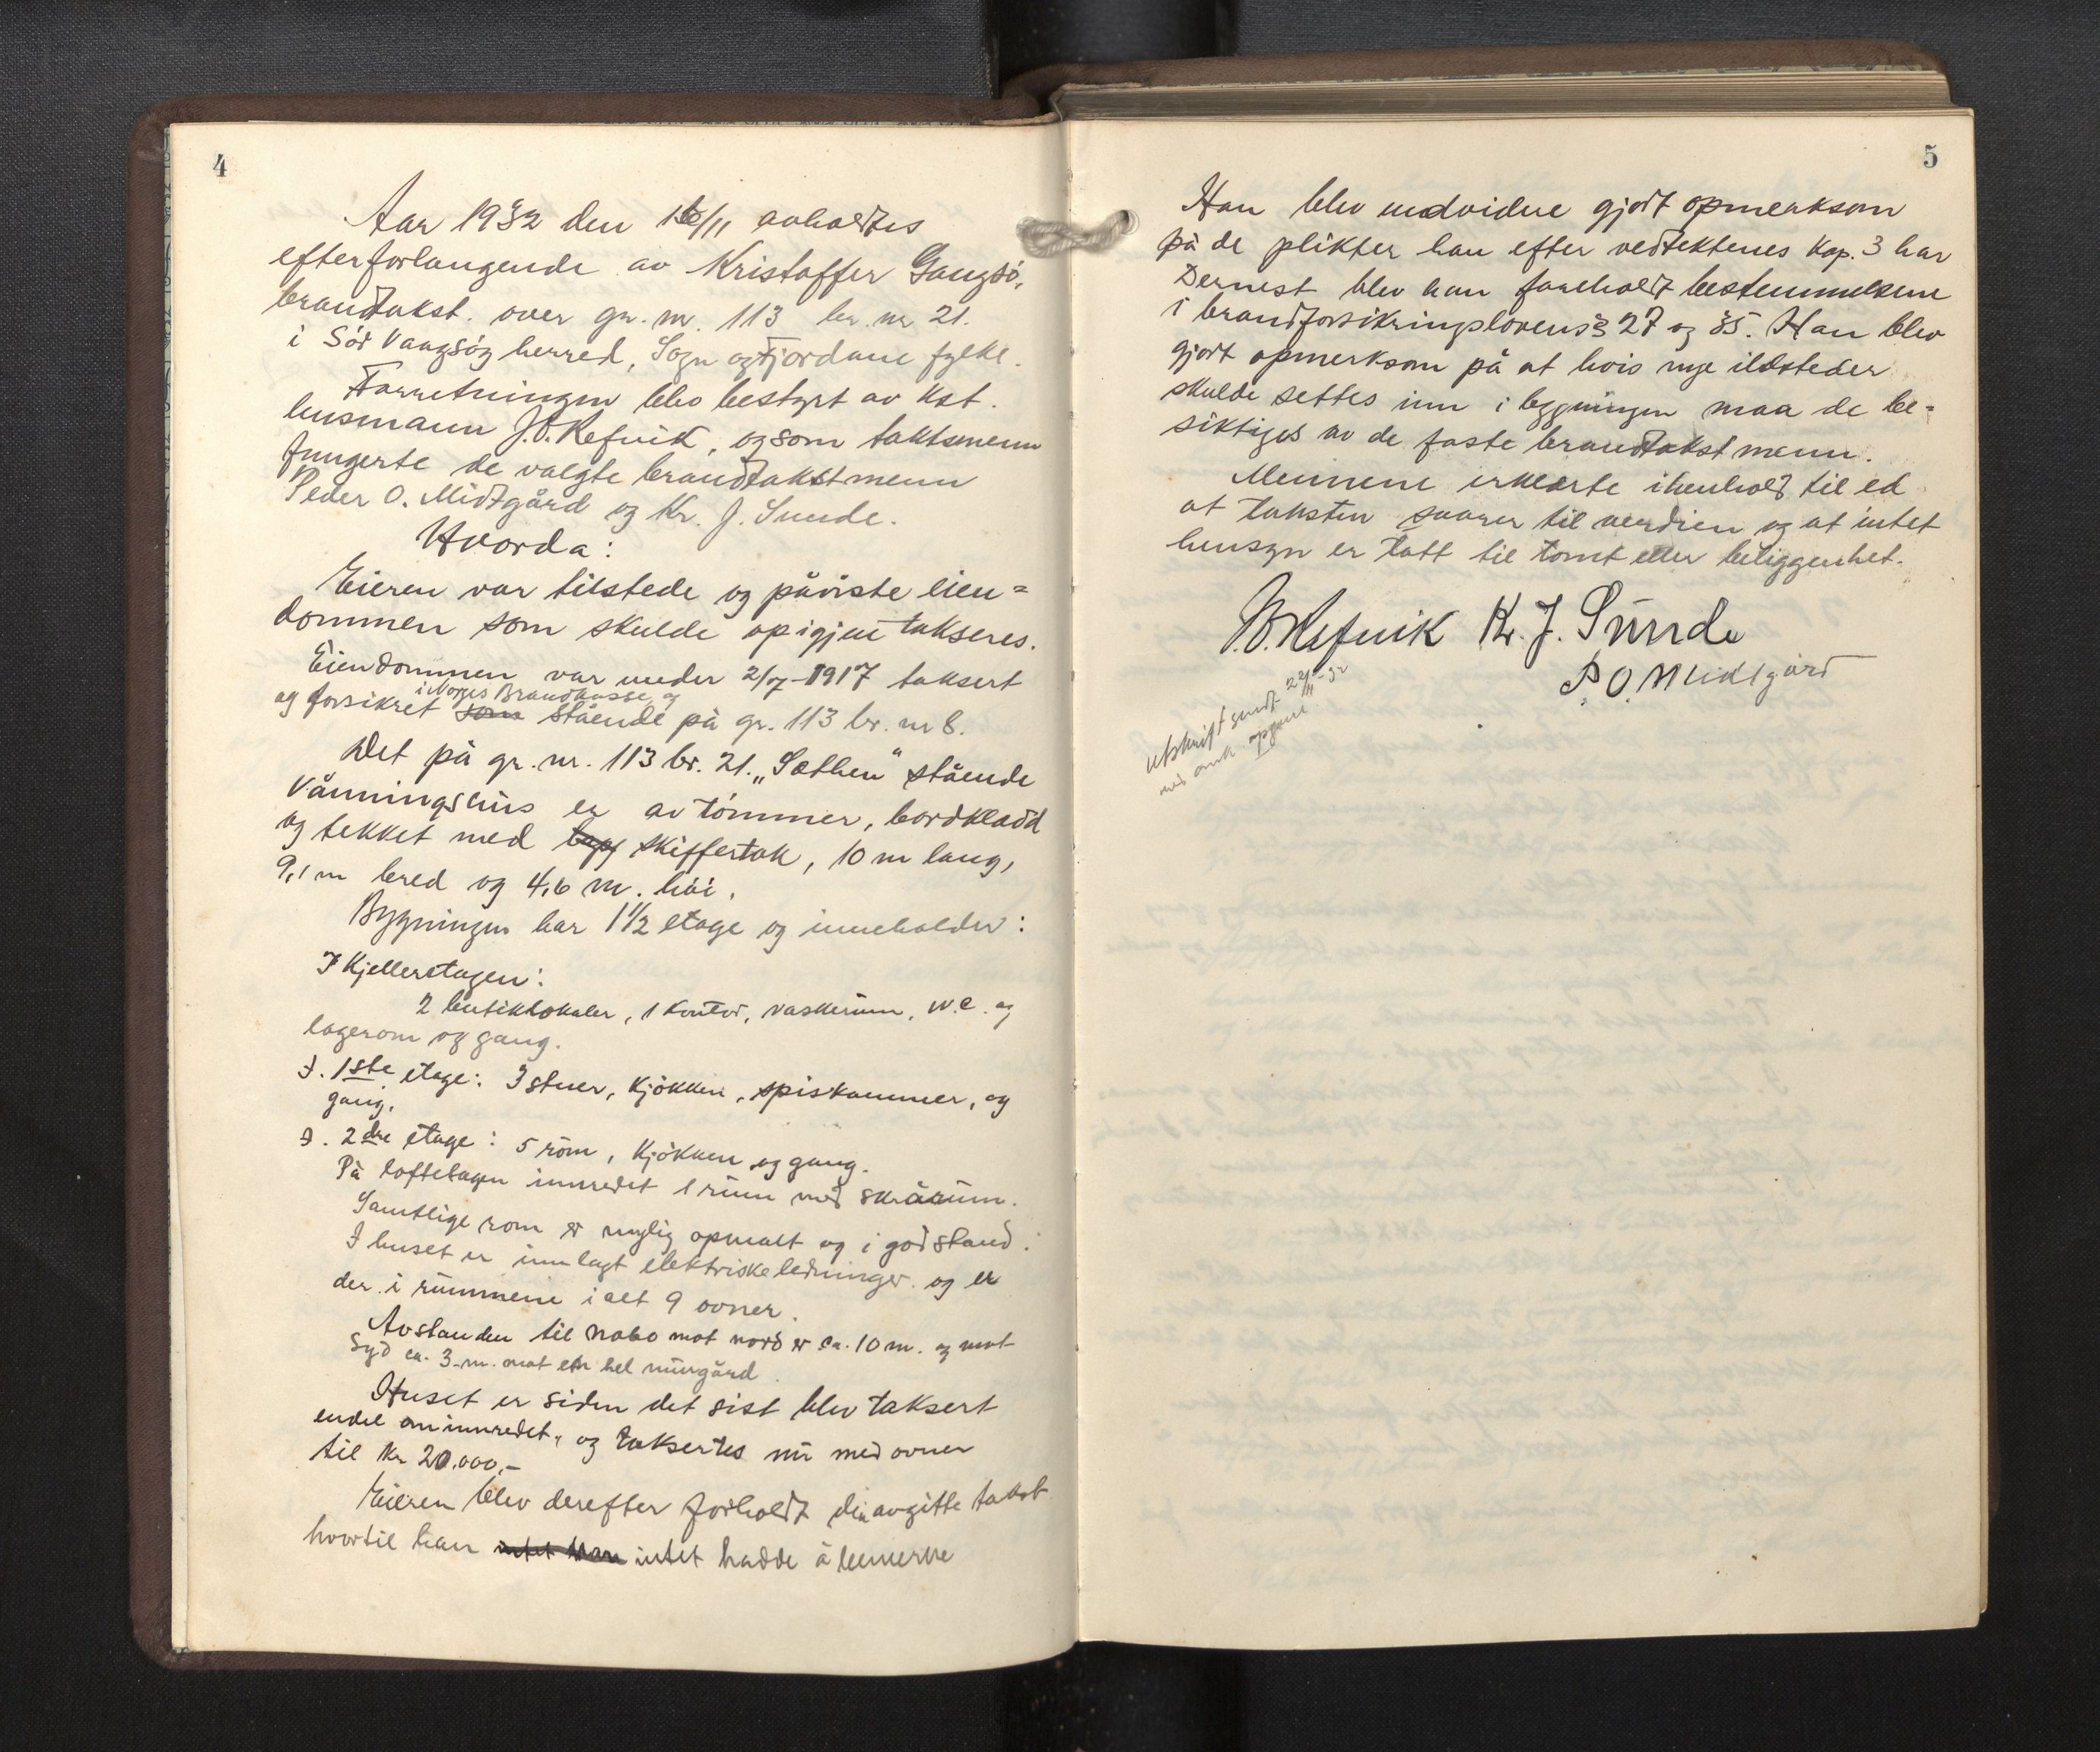 4
Aar 1932 den 16/11 avholdtes
efter forlangende av Kristoffer Gangsö,
brandtakst. over gr. nr. 113 br. nr 21.
i Sör Vaagsög herred, Sogn og Fjordane fylke.
Forretningen blev bestyrt av Kst.
lensmann J.O. Refvik, og som takstmenn
fungerte de valgte brandtakstmenn
Peder O. Midtgård og Kr. J. Sunde.
Hvorda:
Eieren var tilstede og påviste eien=
dommen som skulde op igjen takseres.
Eiendommen var under 2/7-1917 taksert
i Norges Brandkasse, og
og forsikret som stående på gr. 113 br. nr 8.
Det på gr. nr. 113 br. 21. „Sothen" stående
Våningshus er av tömmer, bordkladd
og tekket med skiffertak, 10 m lang,
9,1 m bred og 4,6 m. höi.
Bygningen har 1 1/2 etage og inneholder:
I Kjelleretagen:
2 butiklokaler, 1 kontor, vaskerum, w.c. og
lagerom og gang.
I. 1ste etage: 3 stuer, kjökken, spiskammer, og
gang.
I. 2dre etage: 5 rom, kjökken og gang.
På loftetagen innredet 1 rum med skrårum.
Samtlige rom er nylig opmalt og i god stand.
I huset er innlagt elektriske ledninger og er
der i rummene i alt 9 ovner.
Avstanden til nabo mot nord er ca. 10 m. og mot
Syd ca. 3 m. mot en hel murgård.
Huset er siden det sist blev taksert
endel ominnredet, og taksertes nu med ovner
til Kr 20.000,-
Eieren blev derefter forholdt den avgitte takst
hvortil han intet han intet hadde å bemerke
5
Han blev endvidre gjort opmerksom
på de plikter han efter vedtektenes Kap. 3 har
Dernest blev han foreholdt bestemmelsene
i brandforsikringslovens §§ 27 og 35. Han blev
gjort opmerksom på at hvis nye ildsteder
skulde settes inn i bygningen maa de be=
siktiges av de faste brandtakstmenn.
Mennene erklærte i henhold til ed
at taksten svarer til verdien og at intet
hensyn er tatt til tomt eller beliggenhet.
J.O. Refvik Kr. J. Sunde
P. O. Midtgård
Utskrift sendt 22/11
med